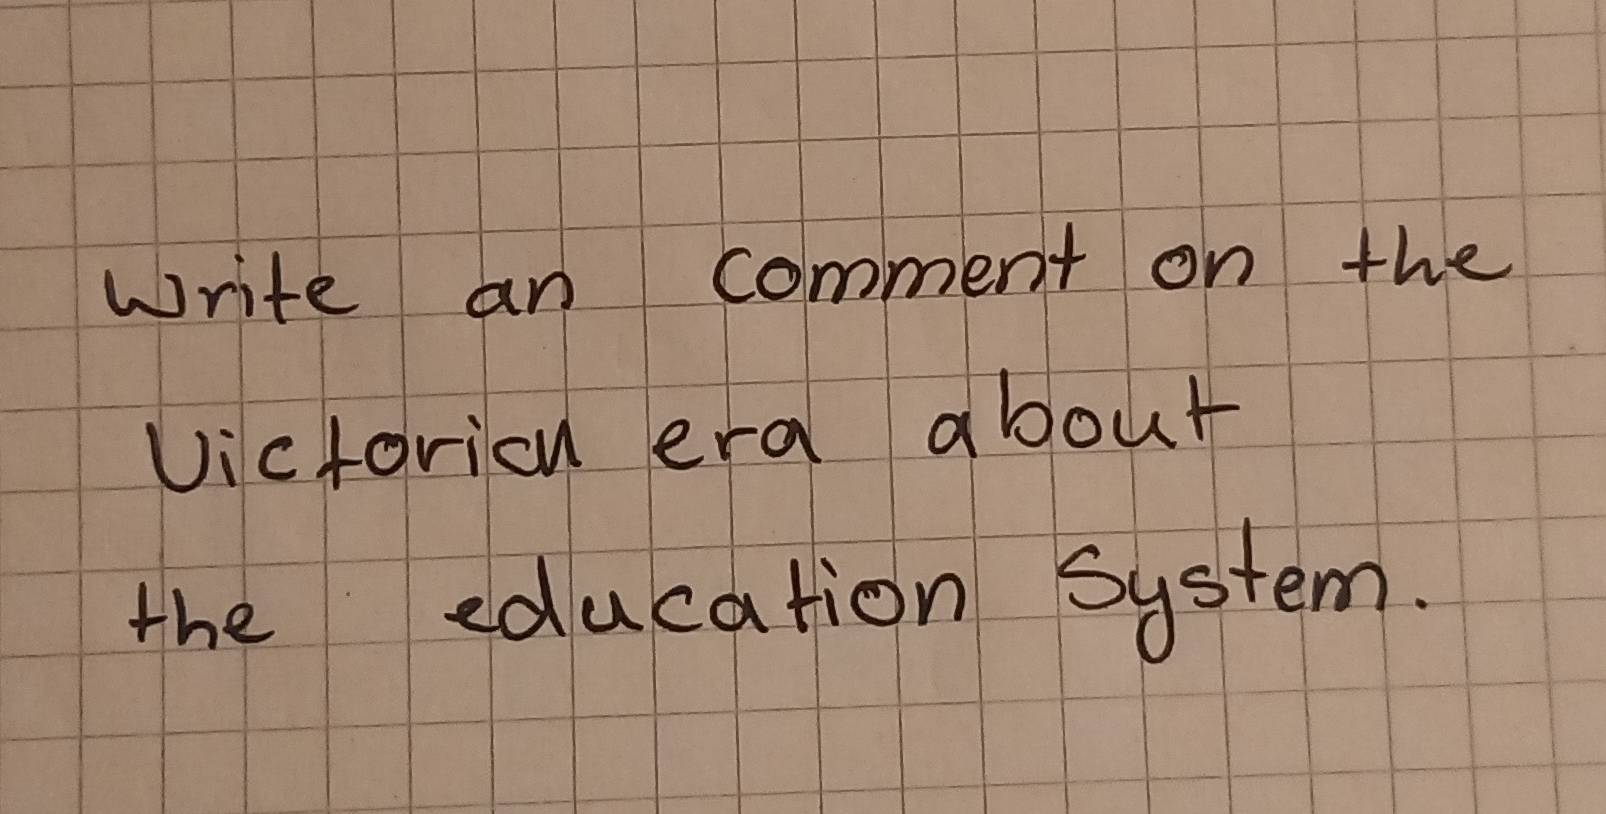 Write an comment on the
Victorian era about
the education system.